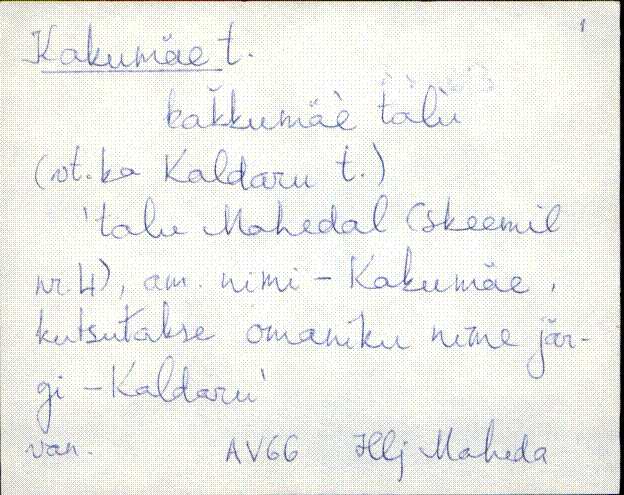 1
Kakumäe t.
kak̆kumäè tàlù
(vt. ka Kaldaru t.)
'talu Mahedal (skeemil
nr. 4), am. nimi - Kakumäe,
kutsutakse omaniku nime jär-
gi - Kaldaru'
van. AV66 Hlj Maheda